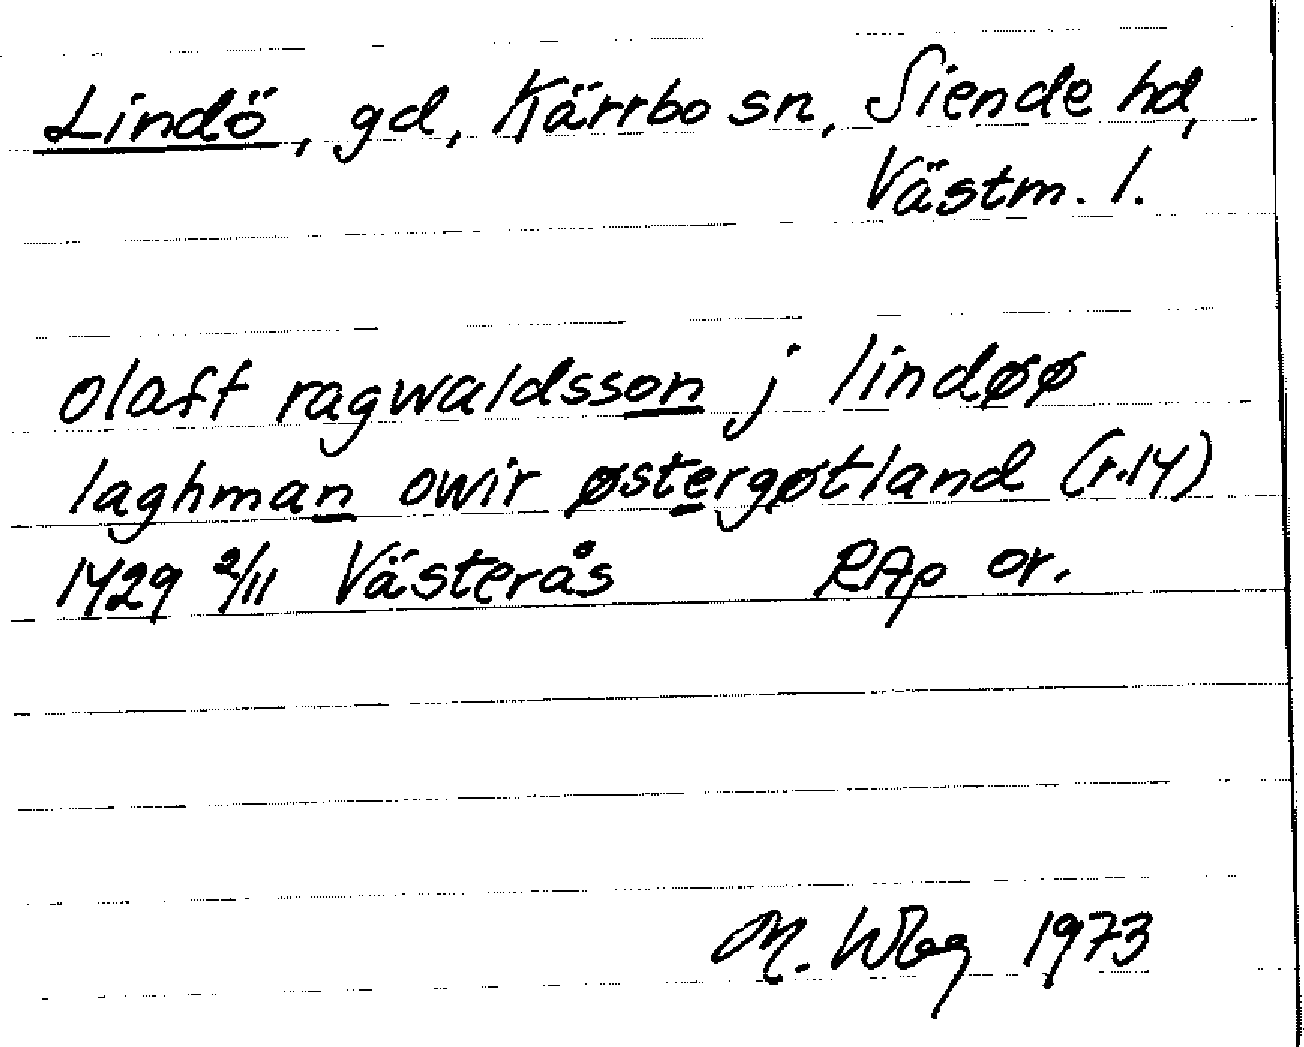 Lindö, gd, Kärrbo sn, Siende hd,
Västm. l.
olaff ragwaldsson j lindøø
laghman owir østergøtland (r.14)
1429 2/11 Västerås RAp or.
M. Wbg 1973